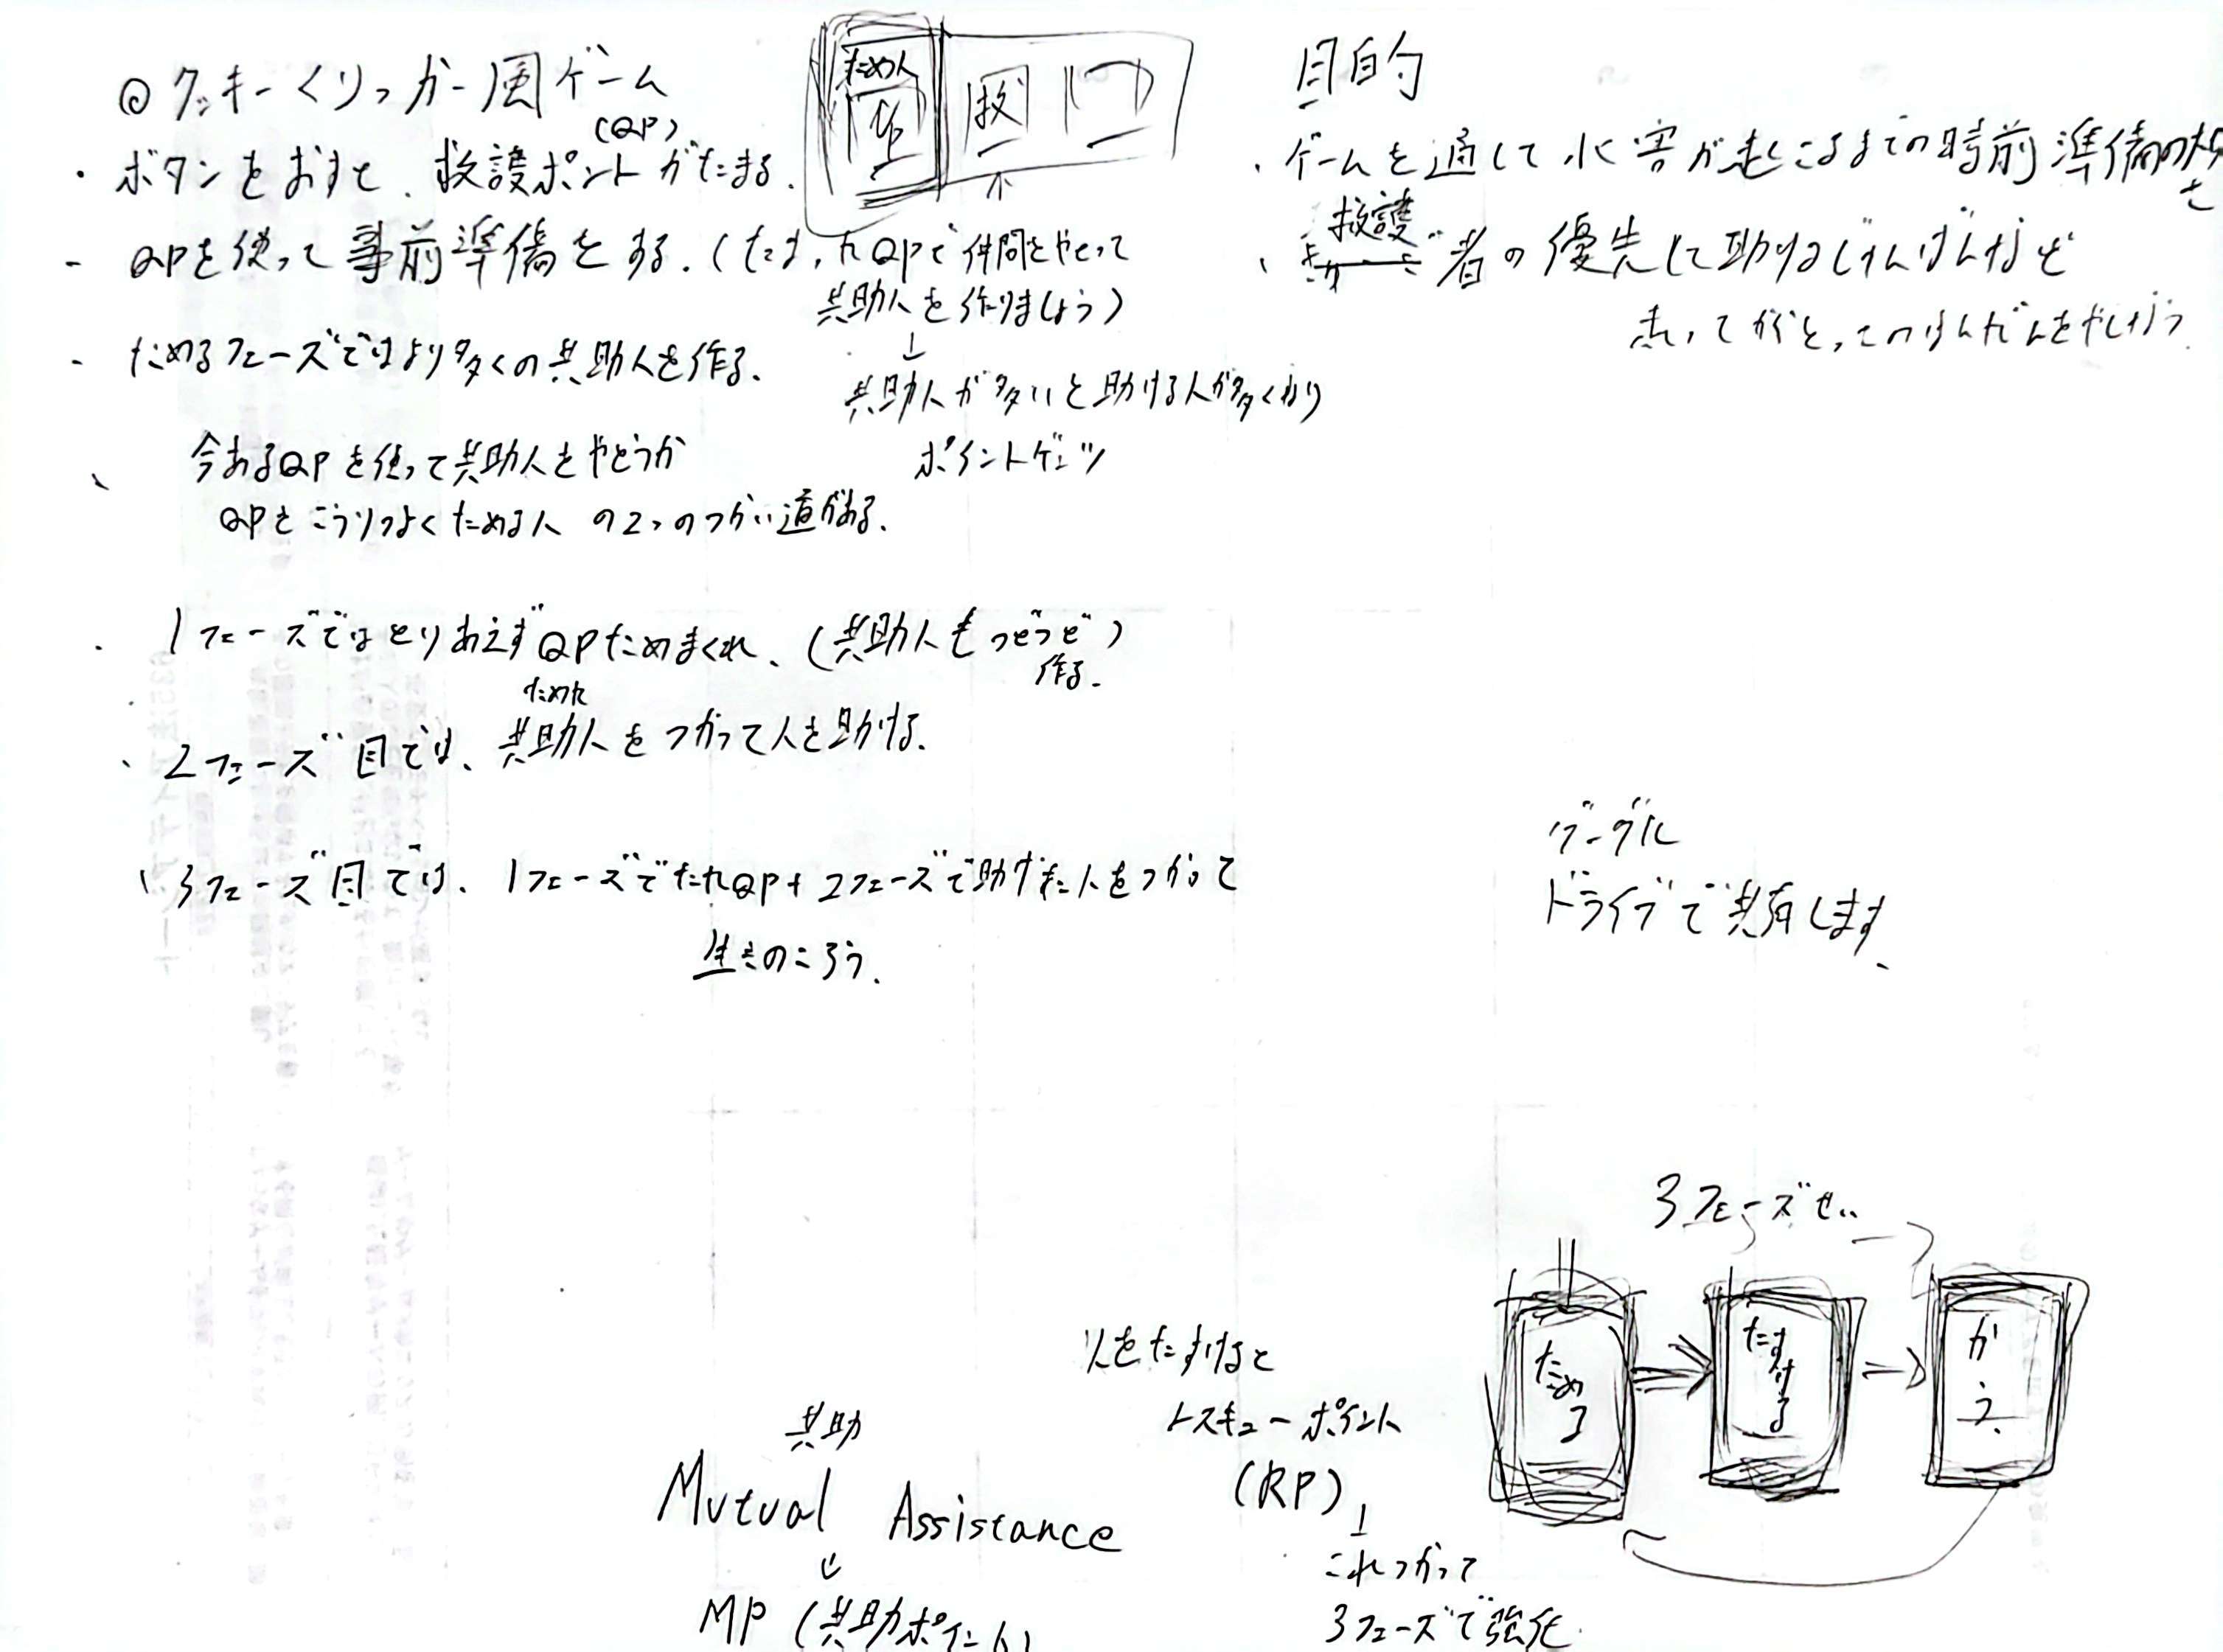 ◎クッキーくりっカー風ゲーム
・ボタンをおすと、救護ポイント(QP)がたまる.
- QPを使って事前準備をする.(たまったQPで仲間をやとって
共助人を作りましょう)
↓
共助人が多いと助ける人が多くなり
ポイントゲッツ
- ためるフェーズではより多くの共助人を作る.
、今あるQPを使って共助人をやとうか
QPをこうりつよくためる人の2つのつかい道がある.
・1フェーズではとりあえずQPためまくれ、(共助人もつどつど作る.)
、2フェーズ目では、ためた共助人をつかって人を助ける.
、3フェーズ目では、1フェーズでためたQP+2フェーズで助けた人をつかって
生きのころう.
ためる
救
目的
・ゲームを通して水害が起こるまでの時前準備の大切さ
、救護者の優先して助けるじゅんばんなど
グーグル
ドライブで共有します、
3フェーズせい
ためる
たすける
かう
人をたすけると
レスキューポイント
(RP)
↓
これつかって
3フェーズで強化
共助
Mutual Assistance
↓
MP (共助ポイント)